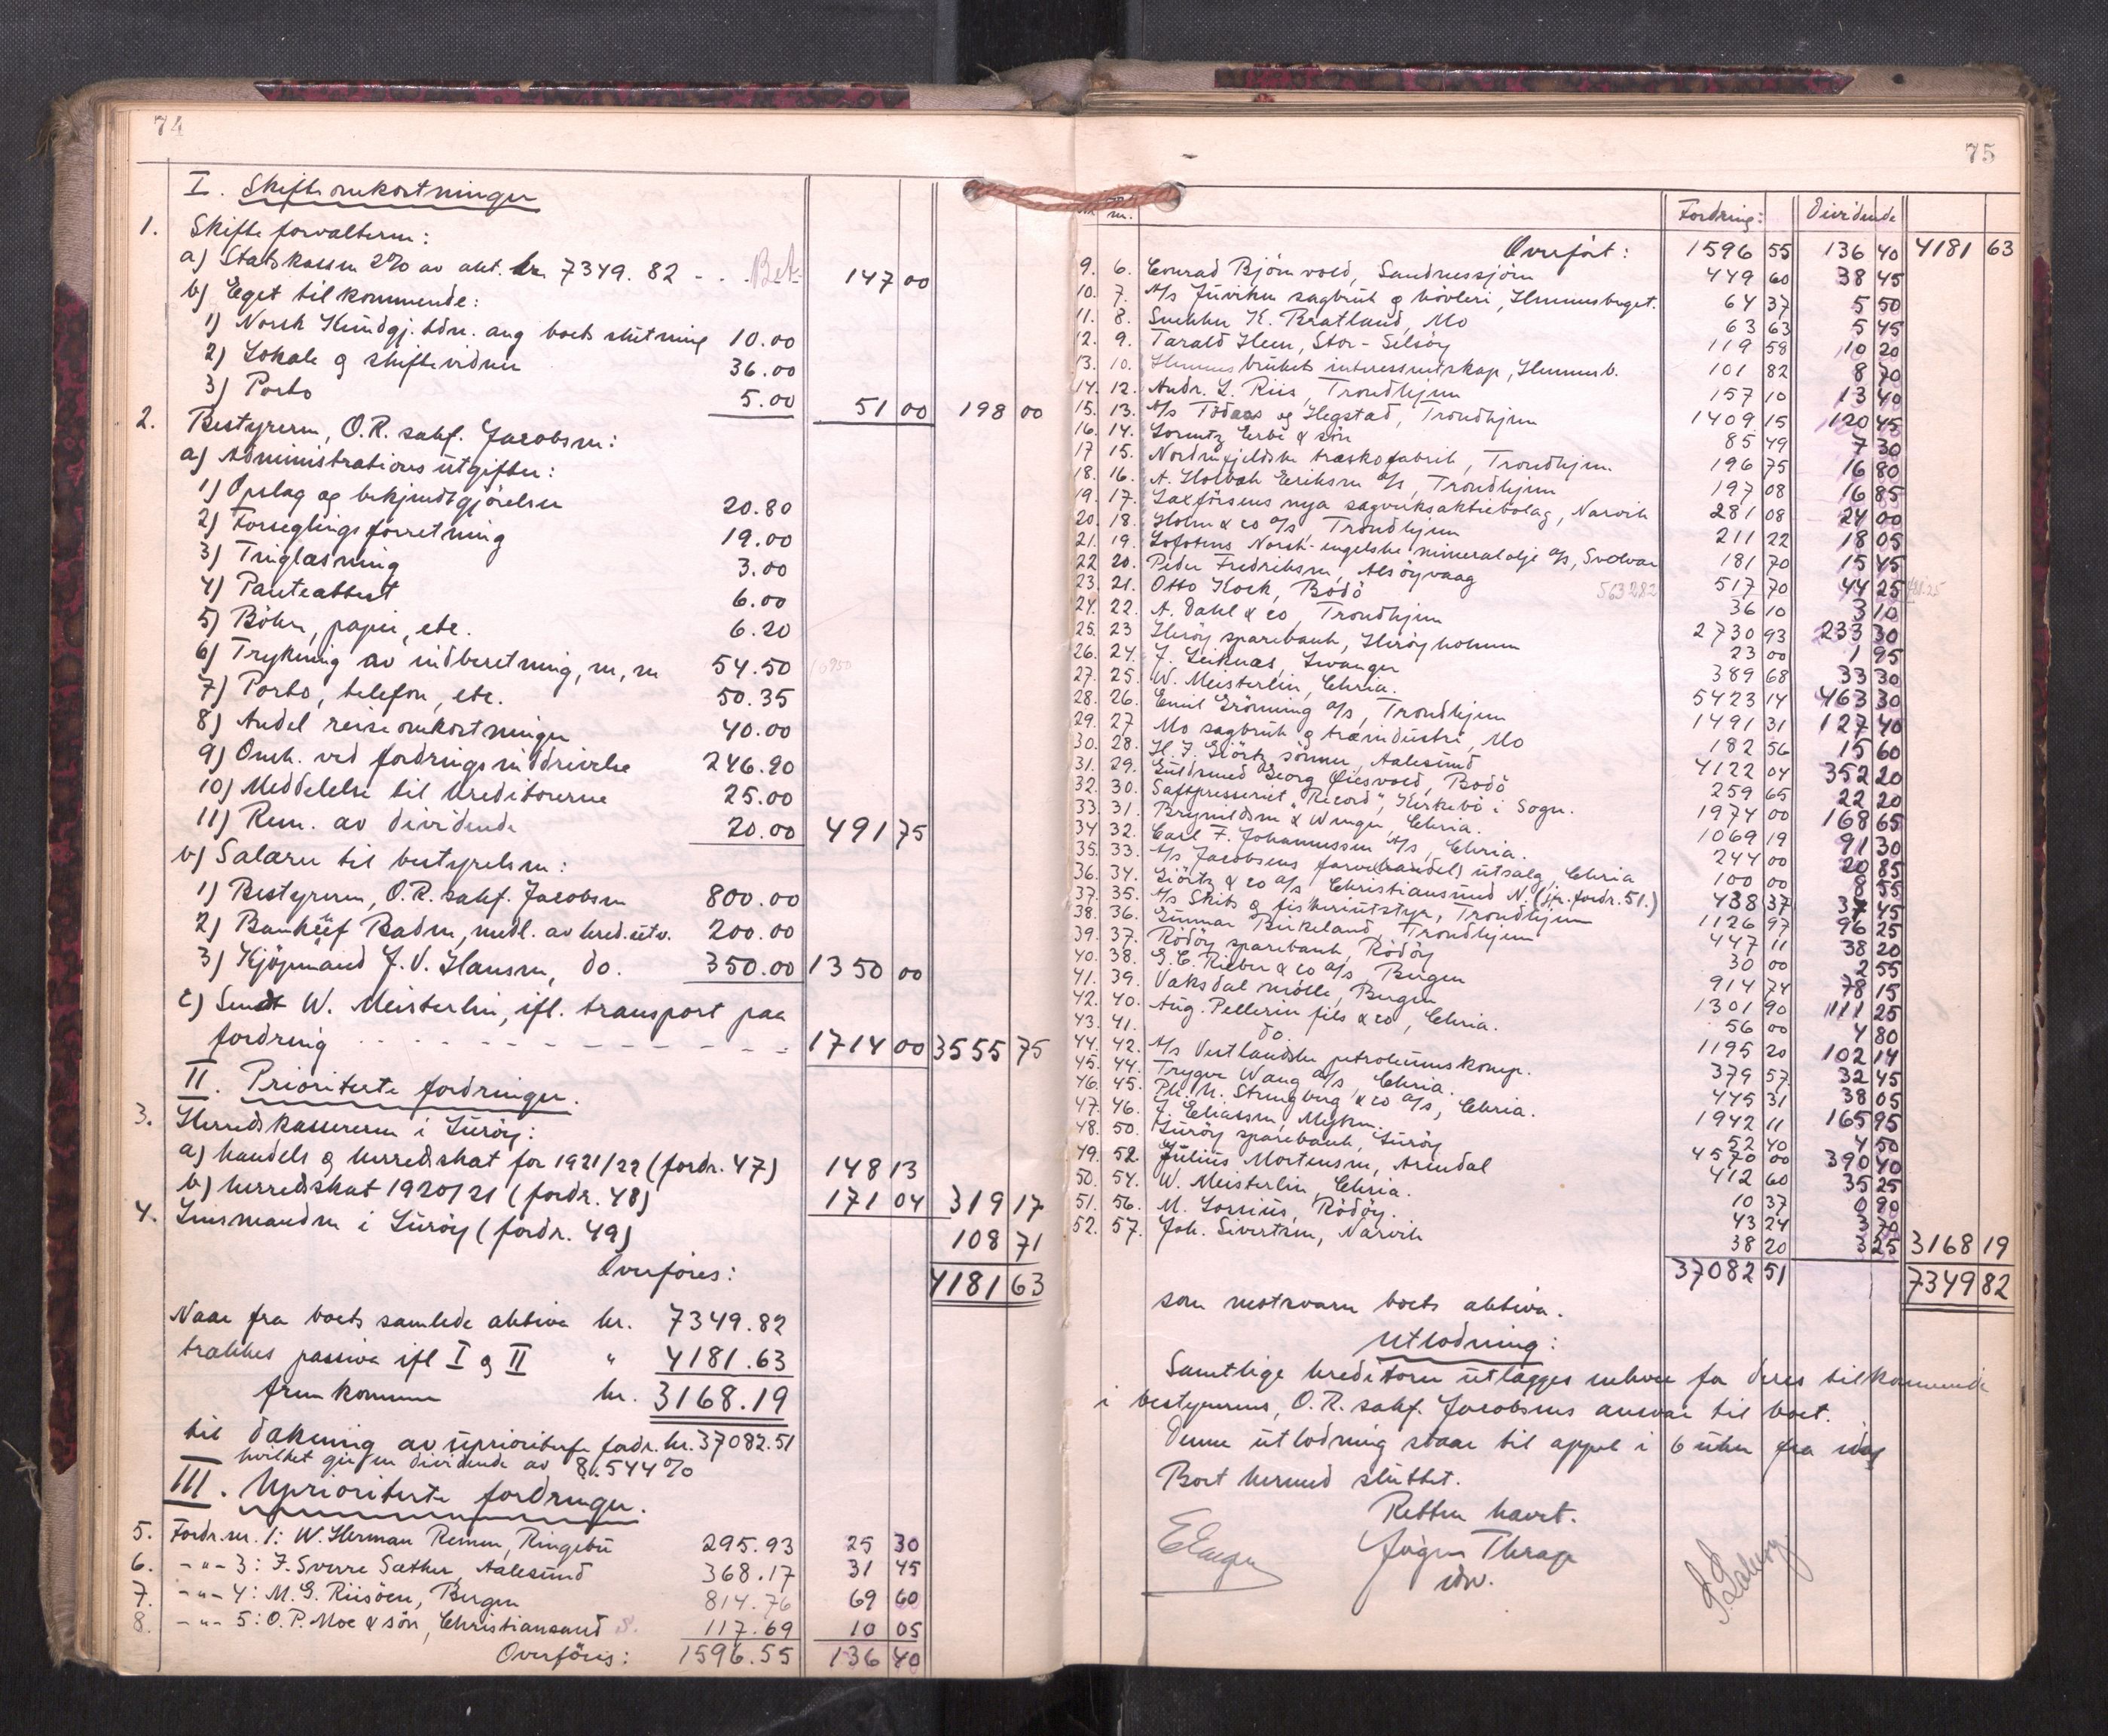 74
I. Skifteomkostninger
1. Skifteforvalteren:
a) Statskassen 2% av akt. kr. 7349.82 - . . Bet. 147 00
b) Eget tilkommende:
1) Norsk Kundgj. tdn. ang boets slutning 10.00
2) Lokale og skiftevidner 36.00
3) Porto 5.00 51 00 198 00
2. Bestyreren, O.R. sakf. Jacobsen:
a) Administrationsutgifter:
1) Opslag og bekjendtgjörelser 20.80
2) Forseglingsforretning 19.00
3) Tinglæsning 3.00
4) Panteattest 6.00
5) Böker, papir, etc. 6.20
6) Trykning av indberetning, m, m 54.50
7) Porto, telefon, etc. 50.35
8) Andel reiseomkostninger 40.00
9) Omk. ved fordringsinddrivelse 246.90
10) Meddelelse til kreditorerne 25.00
11) Rem. av dividende 20.00 491 75
b) Salærer til bestyrelsen:
1) Bestyreren, O.R. sakf. Jacobsen 800.00
2) Bankchef Baden, medl. av kred.utv. 200.00
3) Kjöpmand J. V. Hansen, do. 350.00 1350 00
c) Sendt W. Meisterlin, ifl. transport paa
fordring 1714 00 3555 75
II. Prioriterte fordringer.
3. Herredskassereren i Luröy:
a) handels og herredskat for 1921/22 (fordr. 47) 148 13
b) herredskat 1920/21 (fordr. 48) 171 04 319 17
4. Lensmanden i Luröy (fordr. 49) 108 71
Overføres: 4181 63
Naar fra boets samlede aktiva kr. 7349.82
trækkes passiva ifl I og II " 4181.63
fremkommer kr. 3168.19
til dækning av uprioriterte fordr. kr. 37082.51
hvilket gir en dividende av 8.544%
III. Uprioriterte fordringer.
5. Fordr. nr. 1: W. Herman Remen, Ringebu 295.93 25 30
6. -"- 3: F. Sverre Sæther, Aalesund 368.17 31 45
7. -"- 4: M. G. Riisöen, Bergen 814.76 69 60
8. -"- 5: O. P. Moe & sön, Christiansand S. 117.69 10 05
Overföres: 1596.55 136 40
75
Fordring: Dividende
Overført: 1596 55 136 40 4181 63
9. 6. Conrad Björnvold, Sandnessjöen 449 60 38 45
10. 7. A/s Juviken sagbruk og hövleri, Hemnesberget. 64 37 5 50
11. 8. Svenke K. Bratland, Mo 63 63 5 45
12. 9. Tarald Heen, Stor-Selsöy 119 58 10 20
13. 10. Hemnesbrukets interessentskap, Hemnesb. 101 82 8 70
14. 12. Andr. L. Riis, Trondhjem 157 10 13 40
15. 13. A/s Todaas og Hegstad, Trondhjem 1409 15 120 45
16. 14. Lorentz Erbe & sön 85 49 7 30
17 15. Nordenfjeldske træskofabrik, Trondhjem 196 75 16 80
18. 16. A. Holbæk Eriksen A/s, Trondhjem 197 08 16 85
19. 17. Laxforsens nya sagverksaktiebolag, Narvik 281 08 24 00
20. 18. Holm & co A/s, Trondhjem 211 22 18 05
21. 19. Lofotens Norsk-engelske mineralolje A/s, Svolvær 181 70 15 45
22 20. Peder Fredriksen, Alsöyvaag 517 70 44 25
23 21. Otto Koch, Bodö 36 10 3 10
24. 22. A. Dahl & co, Trondhjem 2730 93 233 30
25. 23 Heröy sparebank, Heröyholmen 23 00 1 95
26. 24. J. Leiknes, Levanger 389 68 33 30
27. 25. W. Meisterlin, Chria. 5423 14 463 30
28. 26. Emil Grönning A/s, Trondhjem 1491 31 127 40
29. 27 Mo sagbruk og træindustri, Mo 182 56 15 60
30. 28. H. J. Giörtz sönner, Aalesund 4122 04 352 20
31. 29. Guldsmed Georg Øiesvold, Bodö 259 65 22 20
32. 30. Saftpresseriet "Record", Kirkebö i Sogn. 1974 00 168 65
33. 31. Brynildsen & Wenger, Chria. 1069 19 91 30
34 32. Carl F. Johannessen A/s, Chria. 244 00 20 85
35. 33. A/s Jacobsens farve(handel) utsalg, Chria 100 00 8 55
36. 34. Giörtz & co A/s Christiansund N. (jfr. fordr. 51.) 438 37 37 45
37. 35. A/s Skibs og fiskeriutstyr, Trondhjem 1126 97 96 25
38. 36. Gunnar Birkeland, Trondhjem 447 11 38 20
39. 37. Rödöy sparebank, Rödöy 30 00 2 55
40. 38. G. C. Rieber & co A/s, Bergen 914 74 78 15
41. 39. Vaksdal mölle, Bergen 1301 90 111 25
42. 40. Aug. Pellerin fils & co, Chria. 56 00 4 80
43. 41. do. 1195 20 102 14
44. 42. A/s Vestlandske petroleumskomp. 379 57 32 45
45. 44. Trygve Wang A/s, Chria. 445 31 38 05
46. 45. Ph. M. Strengberg & co A/s, Chria. 1942 11 165 95
47. 46. J. Eliassen, Myken. 52 40 4 50
48. 50. Luröy sparebank, Luröy 4570 00 390 40
49. 52. Julius Mortensen, Arendal 412 60 35 25
50. 54. W. Meisterlin, Chria. 10 37 0 90
51. 56. M. Lorvius, Rödöy. 43 24 3 70
52. 57. Joh. Sivertsen, Narvik 38 20 3 25 3168 19
37082 51 7349 82
som motsvarer boets aktiva.
Utlodning:
Samtlige kreditorer utlægges enhver for deres tilkommende
i bestyrerens, O.R. sakf. Jacobsens ansvar til boet.
Denne utlodning staar til appel i 6 uker fra idag
Boet hermed sluttet.
Retten hævet.
Jörgen Thrap